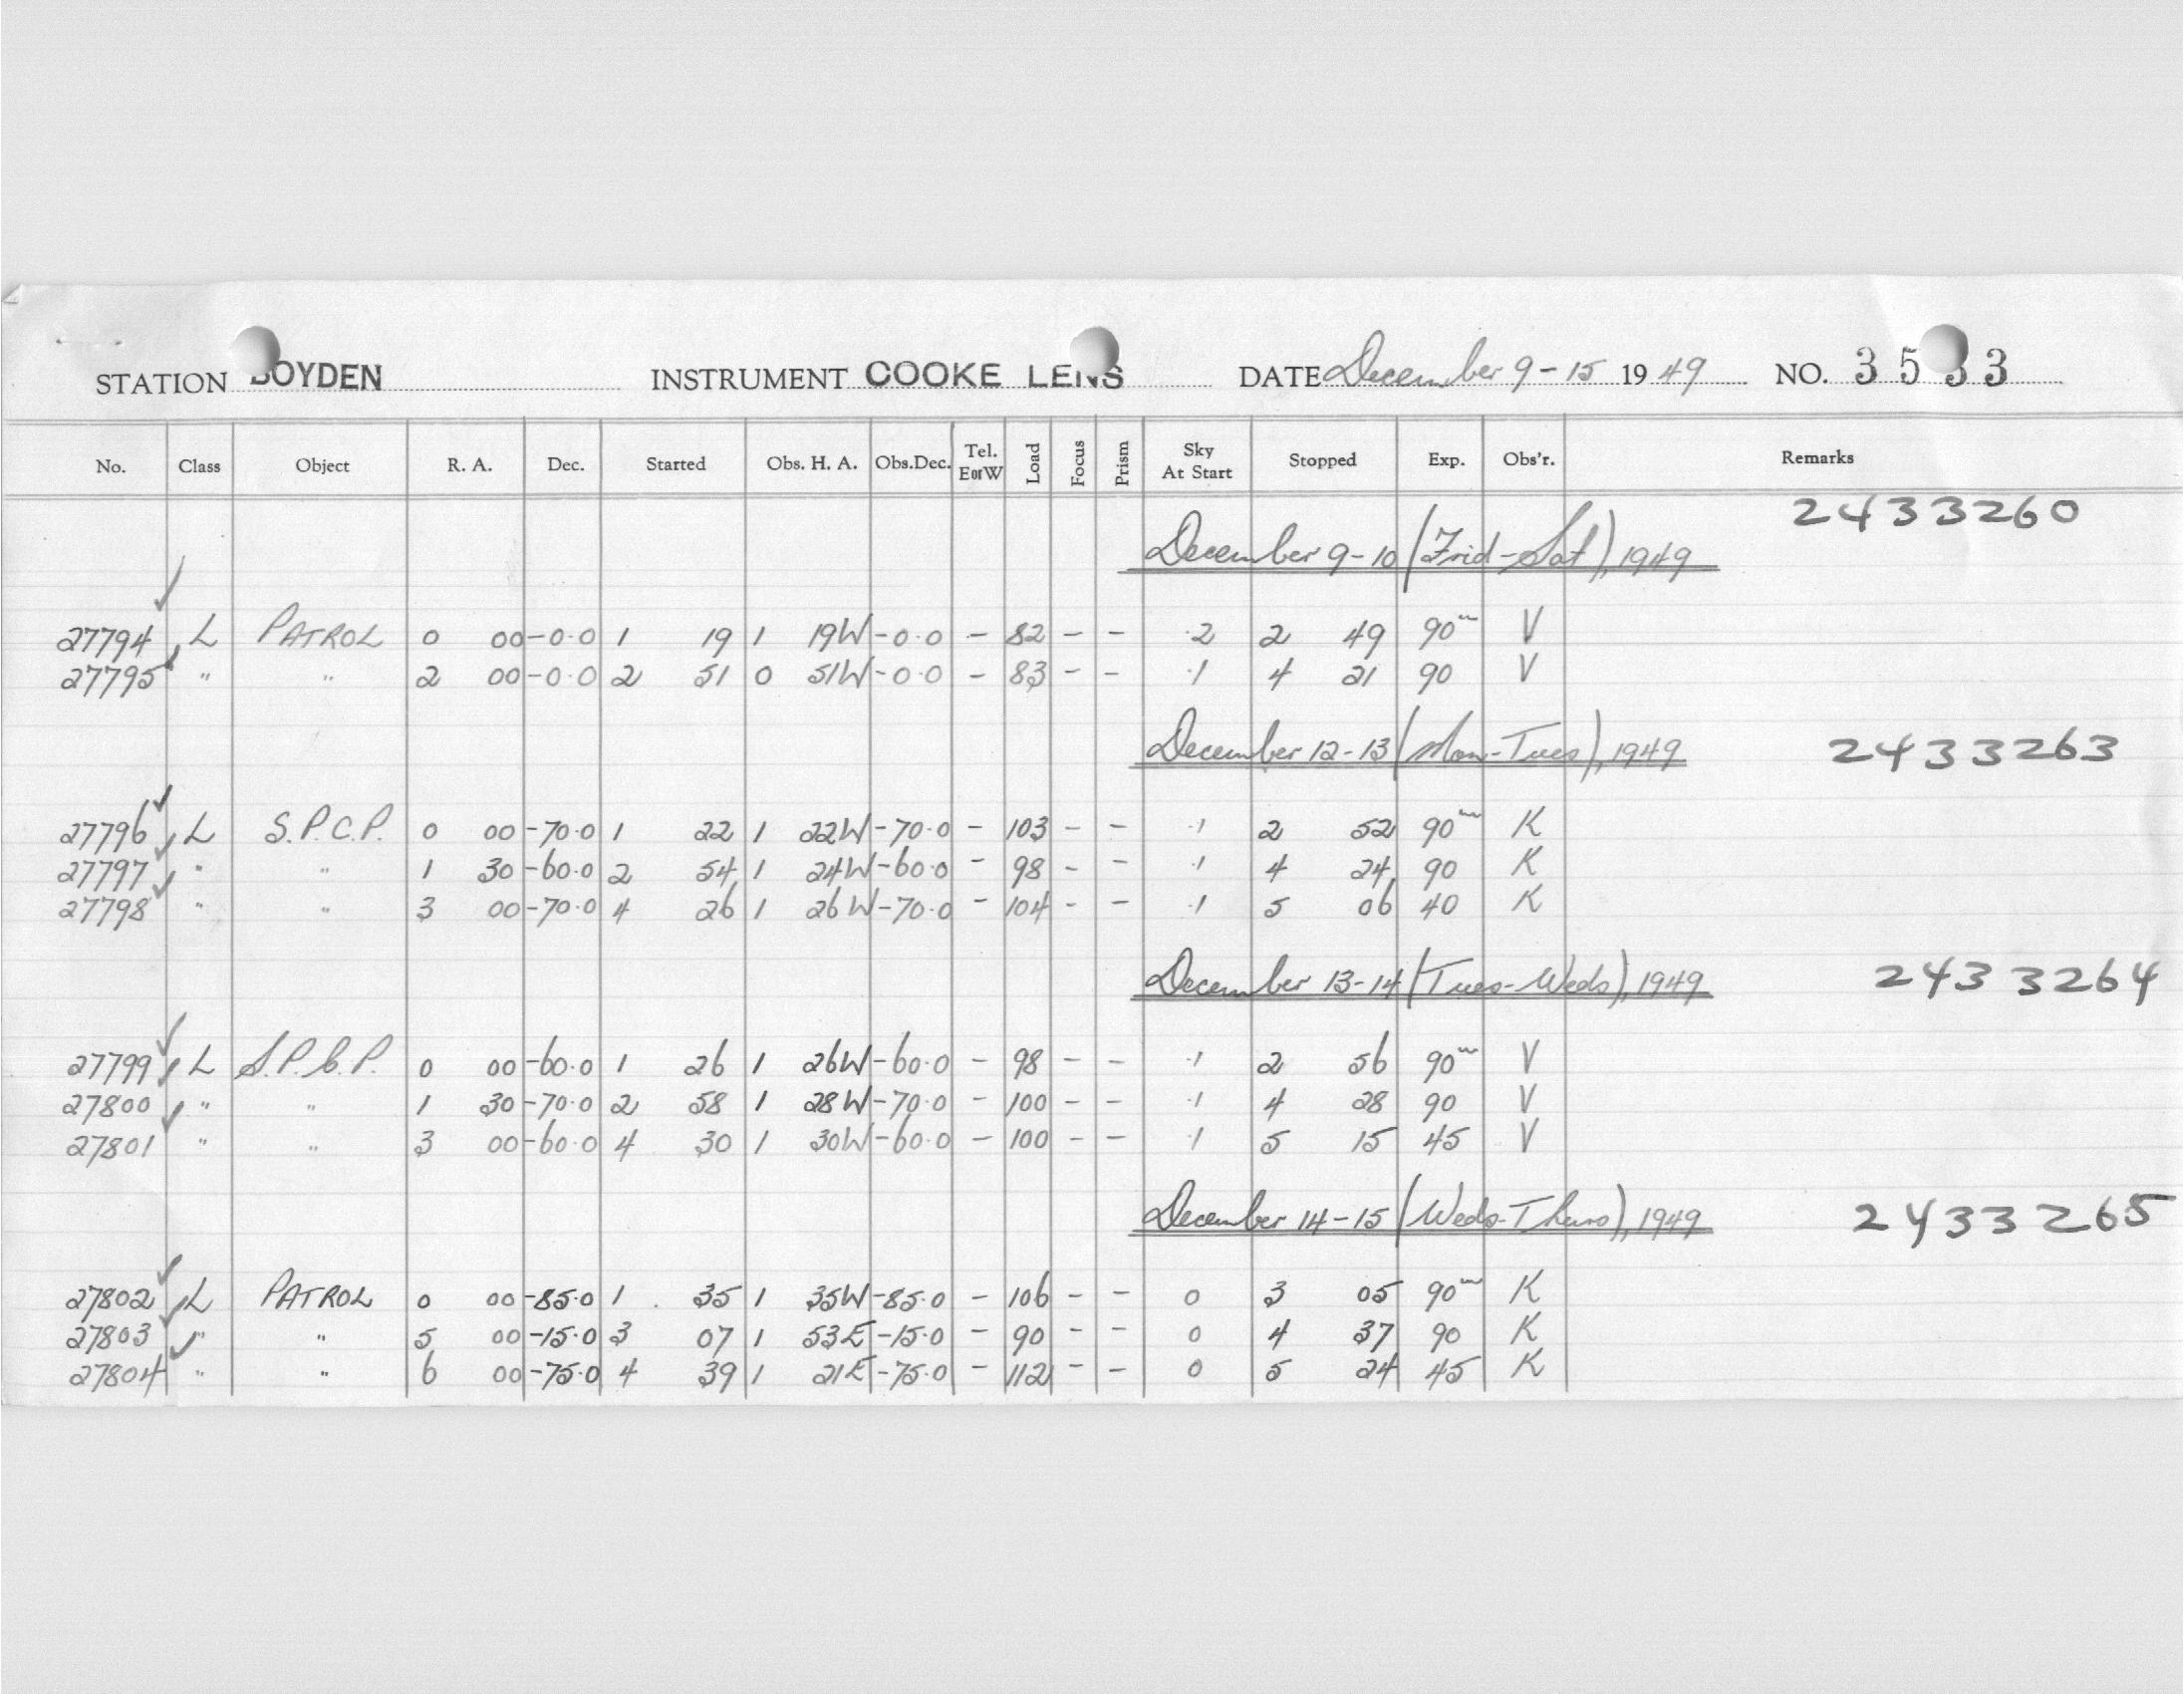 STATION BOYDEN INSTRUMENT COOKE LENS DATE December 9-15 1949 NO. 3533
No. Class Object R. A. Dec. Started Obs. H. A. Obs.Dec. Tel. E or W Load Focus Prism Sky At Start Stopped Exp. Obs'r. Remarks
2433260
December 9-10 (Frid-Sat), 1949
27794 L PATROL 0 00 -0.0 1 19 1 19W -0.0 - 82 - - .2 2 49 90m V
27795 " " 2 00 -0.0 2 51 0 51W -0.0 - 83 - - .1 4 21 90 V
December 12-13 (Mon-Tues), 1949 2433263
27796 L S.P.C.P. 0 00 -70.0 1 22 1 22W -70.0 - 103 - - .1 2 52 90m K
27797 " " 1 30 -60.0 2 54 1 24W -60.0 - 98 - - .1 4 24 90 K
27798 " " 3 00 -70.0 4 26 1 26W -70.0 - 104 - - .1 5 06 40 K
December 13-14 (Tues-Weds), 1949 2433264
27799 L S.P.C.P. 0 00 -60.0 1 26 1 26W -60.0 - 98 - - .1 2 56 90m V
27800 " " 1 30 -70.0 2 58 1 28W -70.0 - 100 - - .1 4 28 90 V
27801 " " 3 00 -60.0 4 30 1 30W -60.0 - 100 - - .1 5 15 45 V
December 14-15 (Weds-Thurs), 1949 2433265
27802 L PATROL 0 00 -85.0 1 35 1 35W -85.0 - 106 - - 0 3 05 90m K
27803 " " 5 00 -15.0 3 07 1 53E -15.0 - 90 - - 0 4 37 90 K
27804 " " 6 00 -75.0 4 39 1 21E -75.0 - 112 - - 0 5 24 45 K